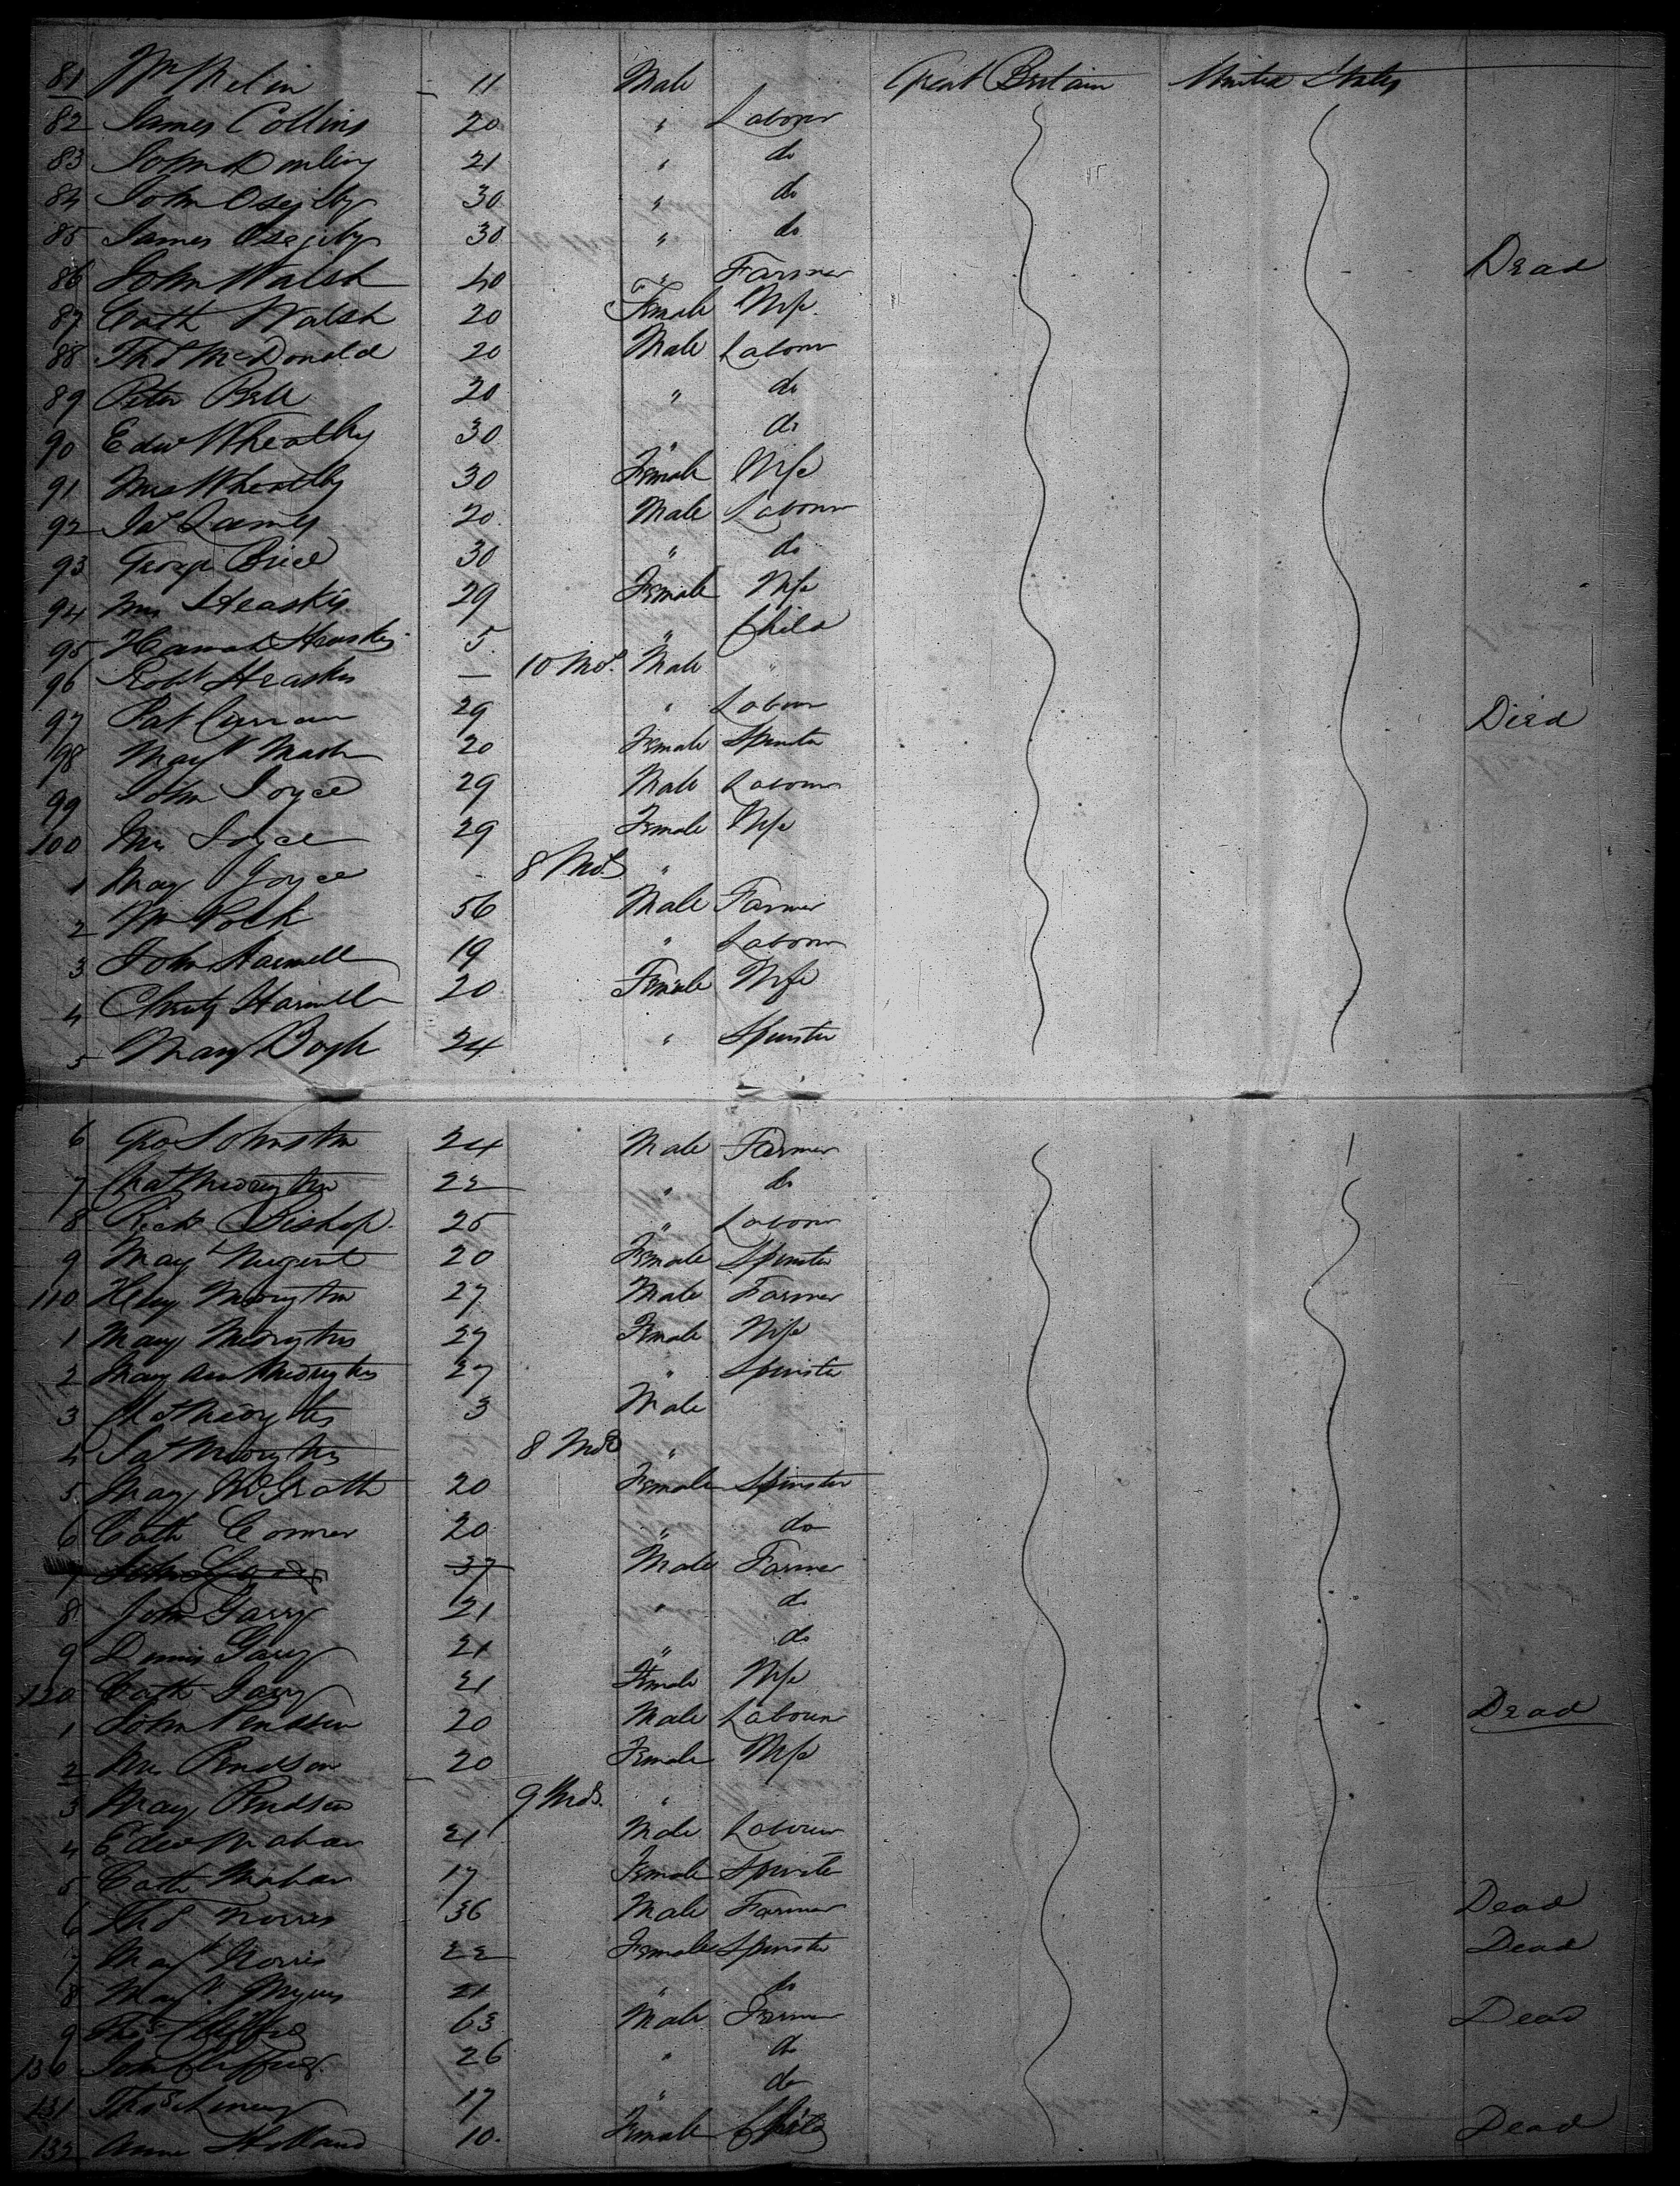 81 Wm Melvin 11 Male Great Britain United States
82 James Collins 20 " Labourer
83 John 21 " do
84 John Osegilby 30 " do
85 James Osegilby 30 " do
86 John Walsh 40 " Farmer Dead
87 Cath Walsh 20 Female Wife
88 Thos McDonald 20 Male Labourer
89 Peter Bell 20 " do
90 Edwd Wheatley 30 " do
91 Mrs Wheatley 30 Female Wife
92 Jas 20 Male Labourer
93 George Brice 30 " do
94 Mrs Heaskis 29 Female Wife
95 Hannah Heaskis 5 " Child
96 Robt Heaskis — 10 Mos. Male "
97 Pat Curran 29 " Labour Died
98 Mary Nash 20 Female Spinster
99 John Joyce 29 Male Labourer
100 Mrs Joyce 29 Female Wife
1 Mary Joyce - 8 Mos "
2 Wm Polk 56 Male Farmer
3 John Harwell 19 " Labourer
4 Christy Harwell 20 Female Wife
5 Mary Boyle 24 " Spinster
6 Geo Johnston 24 Male Farmer
7 22 " do
8 Richd Bishop 25 " Labourer
9 Mary Nugent 20 Female Spinster
110 Henry 27 Male Farmer
1 Mary 27 Female Wife
2 Mary Ann 27 " Spinster
3 3 Male
4 Jas 8 Mos "
5 Mary McGrath 20 Female Spinster
6 Cath Connor 20 " do
7 John 37 Male Farmer
8 John Garry 21 " do
9 Dennis Garry 21 " do
120 Cath Garry 21 Female Wife
1 John Pendson 20 Male Labourer Dead
2 Mrs Pendson 20 Female Wife
3 Mary Pendson 9 Mos. "
4 Edwd Mahar 21 Male Labourer
5 Cath Mahar 17 Female Spinster
6 Thos Norris 36 Male Farmer Dead
7 Mary Norris 22 Female Spinster Dead
8 Mary Myers 21 " do
9 Thos Clifford 63 Male Farmer Dead
130 John Clifford 26 " do
131 Thos 17 " do
132 Anne Holland 10. Female Child Dead